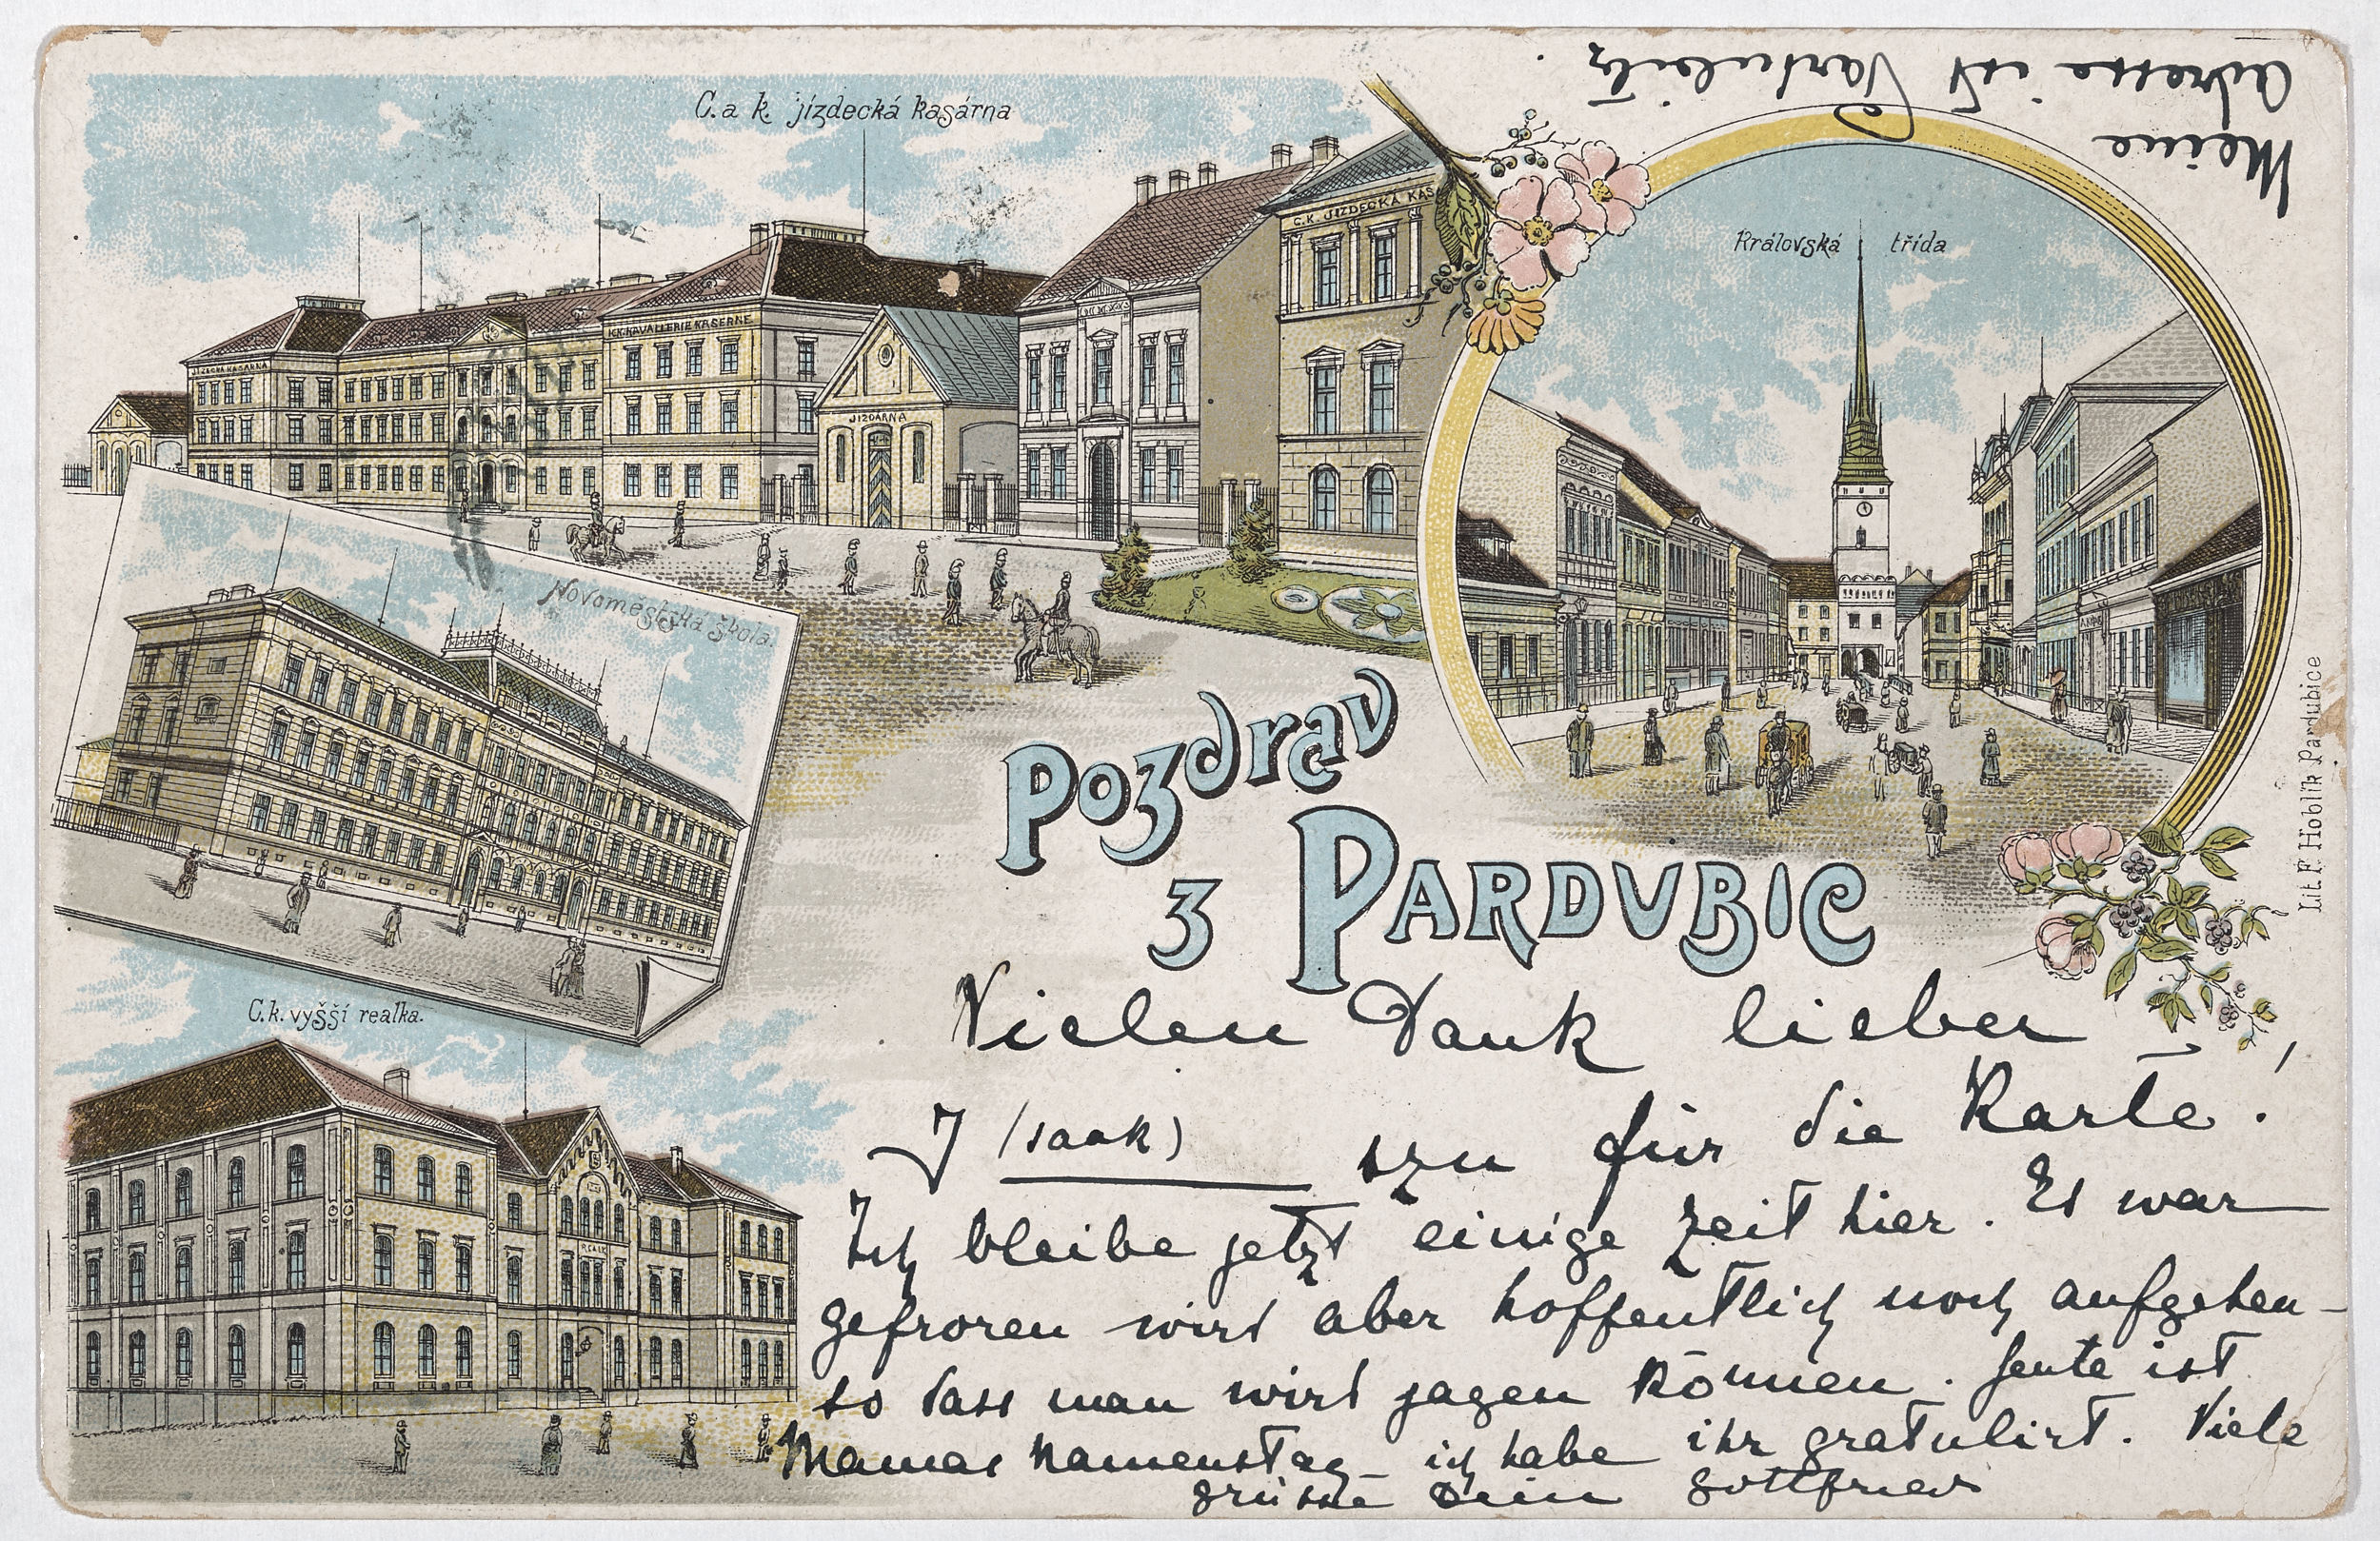 C. a k. jízdecká kasárna
Meine
Adresse ist Pardubitz.
Královská třída
C. K. JÍZDECKÁ KAS
K.K. KAVALLERIE KASERNE
JÍZDECKÁ KASÁRNA
JÍZDÁRNA
Novoměstska škola.
Pozdrav
z PARDUBIC
Lit. F. Hoblík Pardubice
C. k. vyšší realka.
REALK
Vielen Dank lieber
J (saak) szu für die Karte!
Ich bleibe jetzt einige Zeit hier. Es war
gefroren wird aber hoffentlich noch aufgehen –
so dass man wird jagen können. Heute ist
Mamas Namenstag – ich habe ihr gratulirt. Viele
grüsse Dein Gottfried